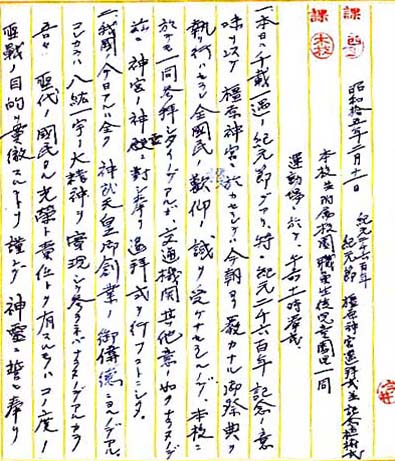 昭和拾五年二月十一日
紀元二千六百年
紀元節 橿原神宮遥拝式並記念植樹式
本校並附属校園職員生徒児童園児一同
運動場ニ於テ、午前十時挙式
一、本日ハ千載一遇ノ紀元節デアリ、特ニ紀元二千六百年記念ノ意
味ヨリシテ橿原神宮ニ於カセラレテハ今朝ヨリ厳カナル御祭典ヲ
執リ行ハセラレ全国民ノ歓仰ノ誠ヲ受ケサセラルルノデ、本校ニ
於テモ一同参拝シタイノデアルガ、交通機関其ノ他意ノ如クナラズ
茲ニ神宮ノ神霊ニ対シ奉リ遥拝式ヲ行フコトニシタ。
二、我国ノ今日アルハ全ク神武天皇御創業ノ御偉徳ニヨルノデアル。
コレカラハ八紘一宇ノ大精神ヲ実現シテ参ラネバナラヌノデアルカラ
吾々聖代ノ国民タル光栄ト責任トヲ有スルモノハコノ度ノ
聖戦ノ目的ヲ貫徹スルコトヲ謹ンデ神霊ニ誓ヒ奉リ